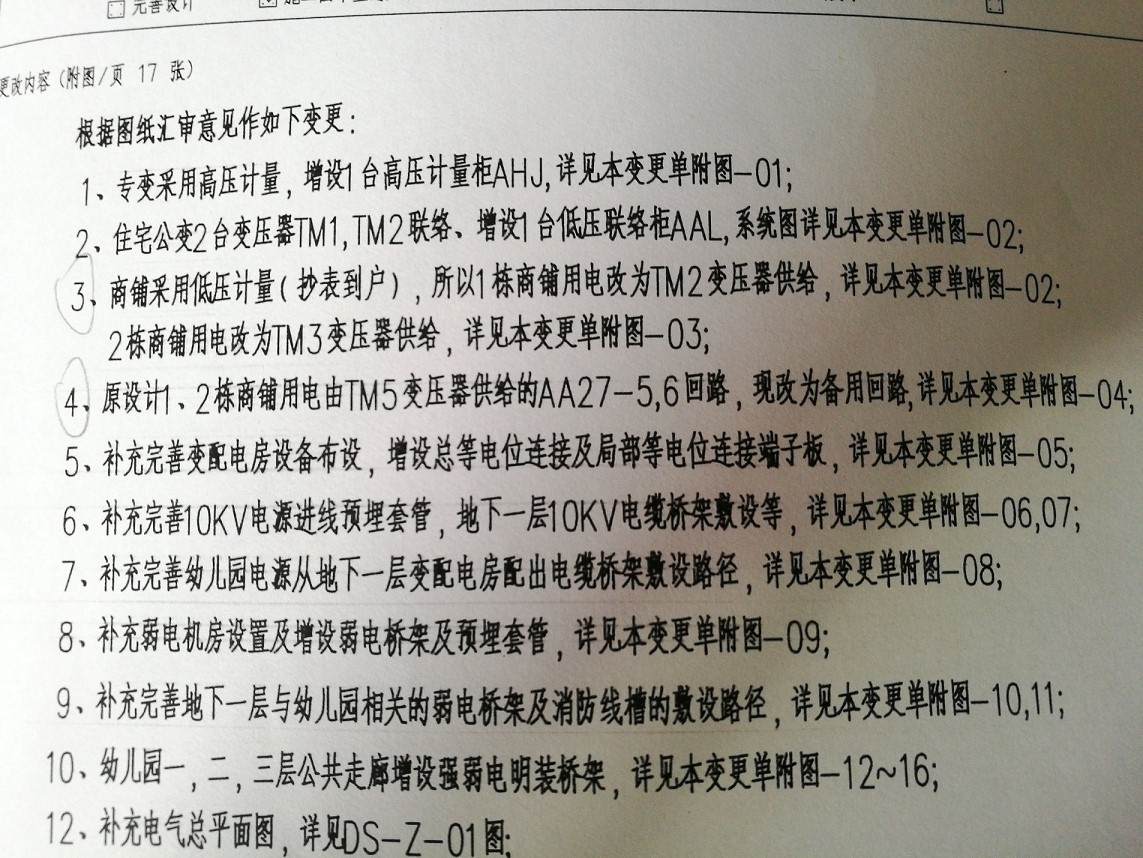 完善设计
更改内容（附图/页 17 张）
根据图纸汇审意见作如下变更：
1、专变采用高压计量，增设1台高压计量柜AHJ,详见本变更单附图-01;
2、住宅公变2台变压器TM1,TM2联络、增设1台低压联络柜AAL,系统图详见本变更单附图-02;
3、商铺采用低压计量(抄表到户)，所以1栋商铺用电改为TM2变压器供给，详见本变更单附图-02;
2栋商铺用电改为TM3变压器供给，详见本变更单附图-03;
4、原设计1、2栋商铺用电由TM5变压器供给的AA27-5,6回路，现改为备用回路,详见本变更单附图-04;
5、补充完善变配电房设备布设，增设总等电位连接及局部等电位连接端子板，详见本变更单附图-05;
6、补充完善10KV电源进线预埋套管，地下一层10KV电缆桥架敷设等，详见本变更单附图-06,07;
7、补充完善幼儿园电源从地下一层变配电房配出电缆桥架敷设路径，详见本变更单附图-08;
8、补充弱电机房设置及增设弱电桥架及预埋套管，详见本变更单附图-09;
9、补充完善地下一层与幼儿园相关的弱电桥架及消防线槽的敷设路径，详见本变更单附图-10,11;
10、幼儿园一，二，三层公共走廊增设强弱电明装桥架，详见本变更单附图-12~16;
12、补充电气总平面图，详见DS-Z-01图;